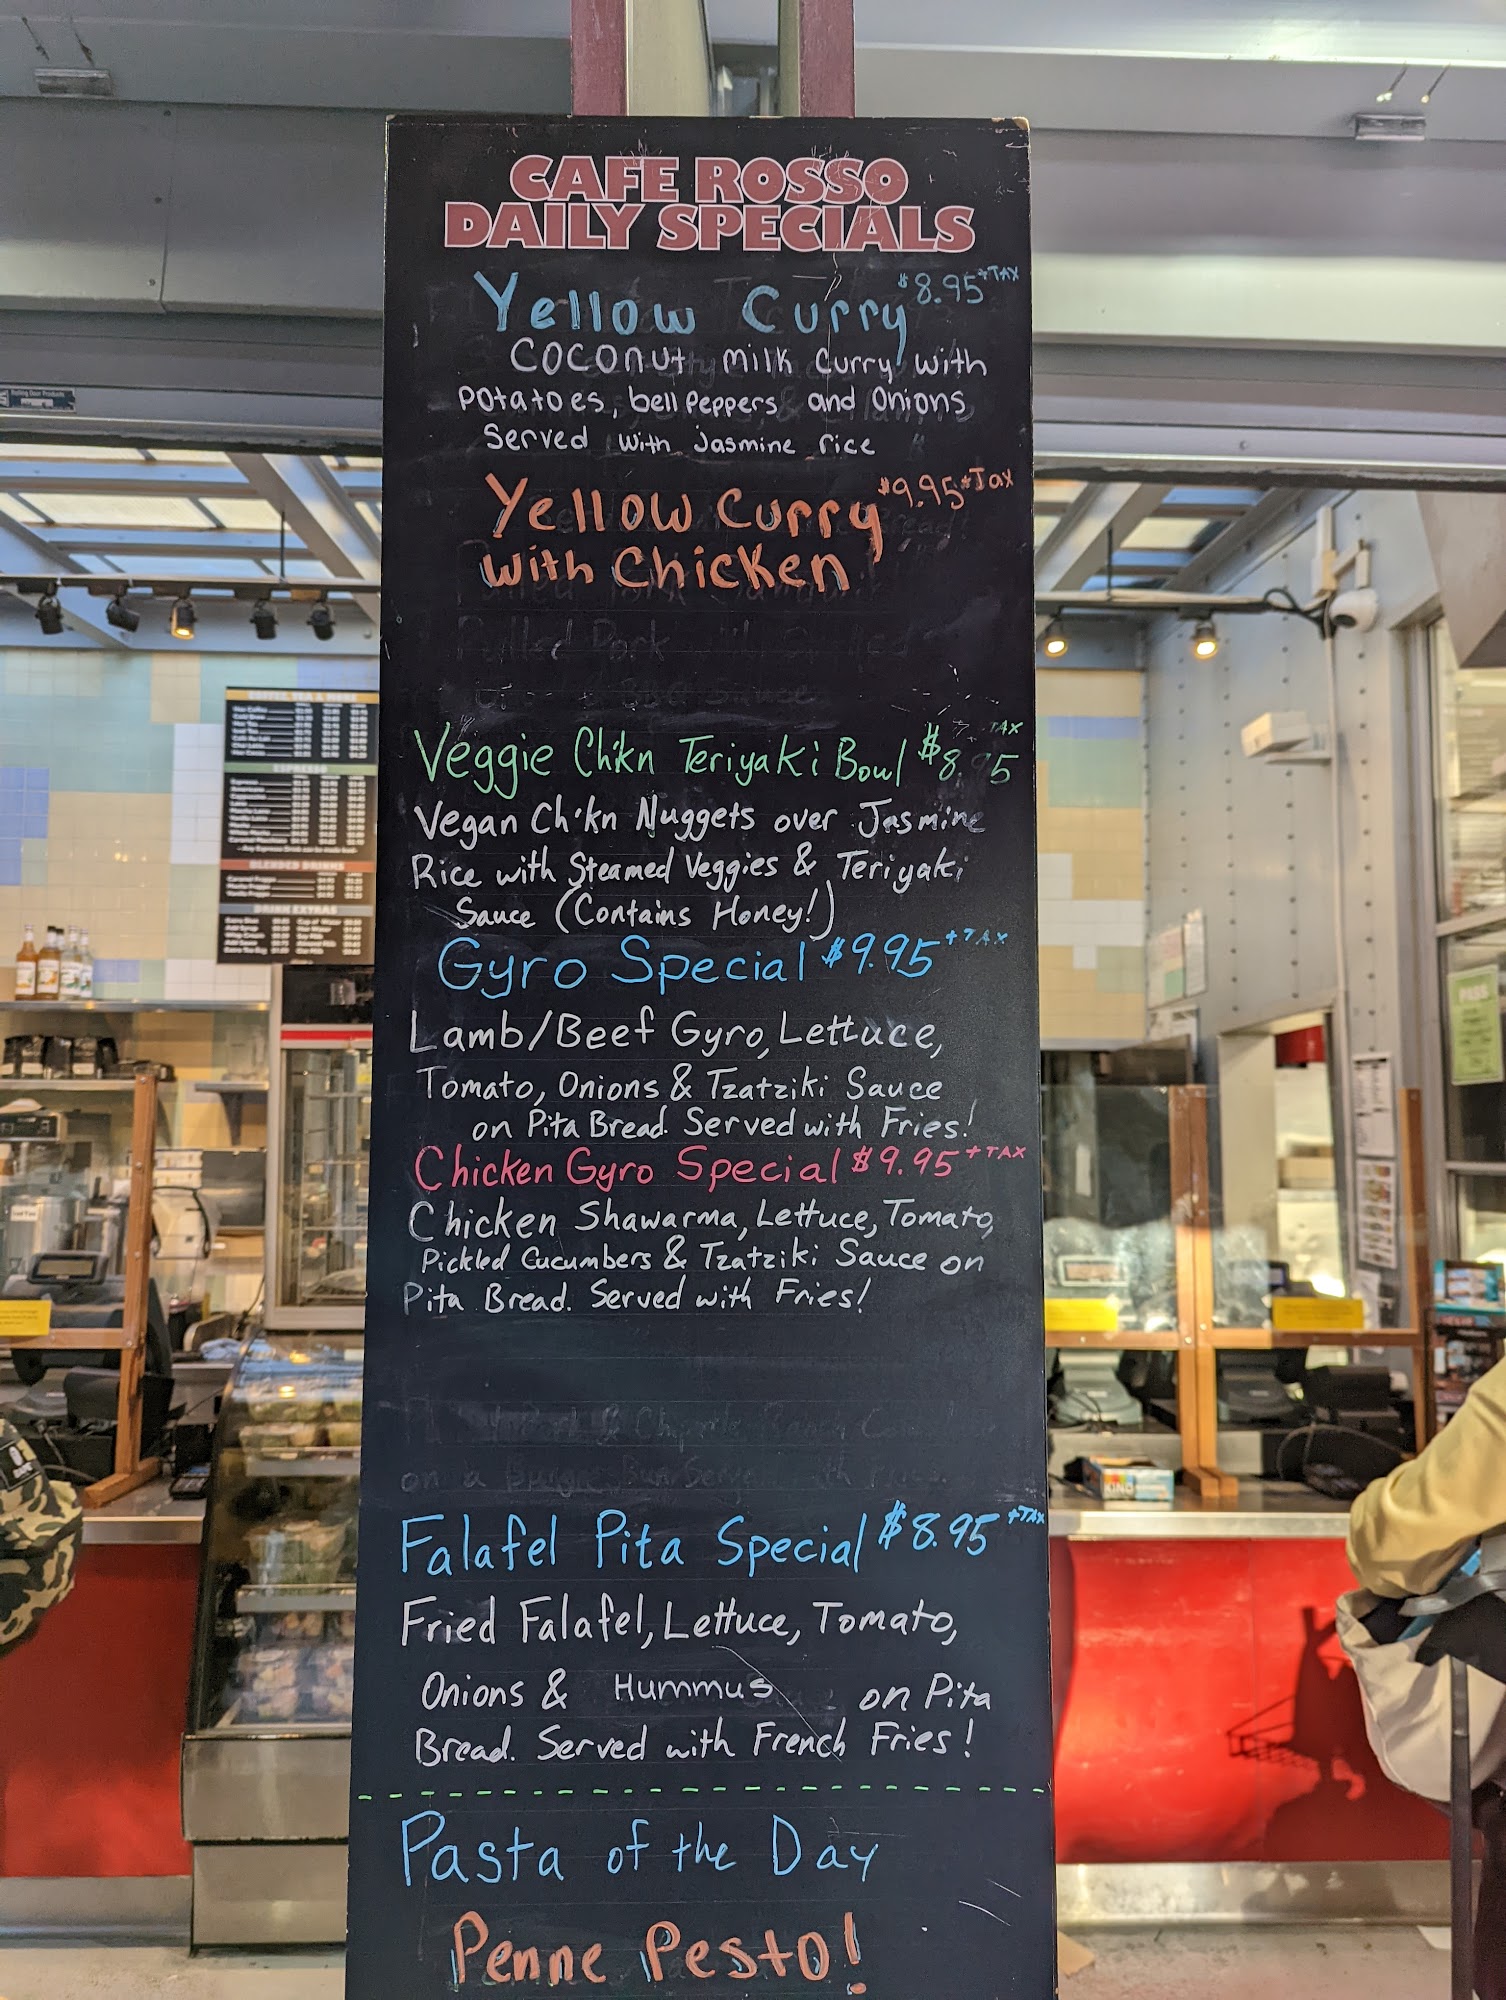 CAFE ROSSO
DAILY SPECIALS
Yellow Curry $8.95 +TAX
Coconut milk curry with
potatoes, bell peppers and onions
served with jasmine rice
Yellow Curry $9.95 +Tax
with Chicken
Veggie Chikn Teriyaki Bowl $8.95 TAX
Vegan Chikn Nuggets over Jasmine
Rice with Steamed Veggies & Teriyaki
Sauce (Contains Honey!)
Gyro Special $9.95 +TAX
Lamb/Beef Gyro, Lettuce,
Tomato, Onions & Tzatziki Sauce
on Pita Bread. Served with Fries!
Chicken Gyro Special $9.95 +TAX
Chicken Shawarma, Lettuce, Tomato,
Pickled Cucumbers & Tzatziki Sauce on
Pita Bread. Served with Fries!
Falafel Pita Special $8.95 +TAX
Fried Falafel, Lettuce, Tomato,
Onions & Hummus on Pita
Bread. Served with French Fries!
Pasta of the Day
Penne Pesto!
ESPRESSO
BLENDED DRINKS
DRINK EXTRAS
PASS
KIND